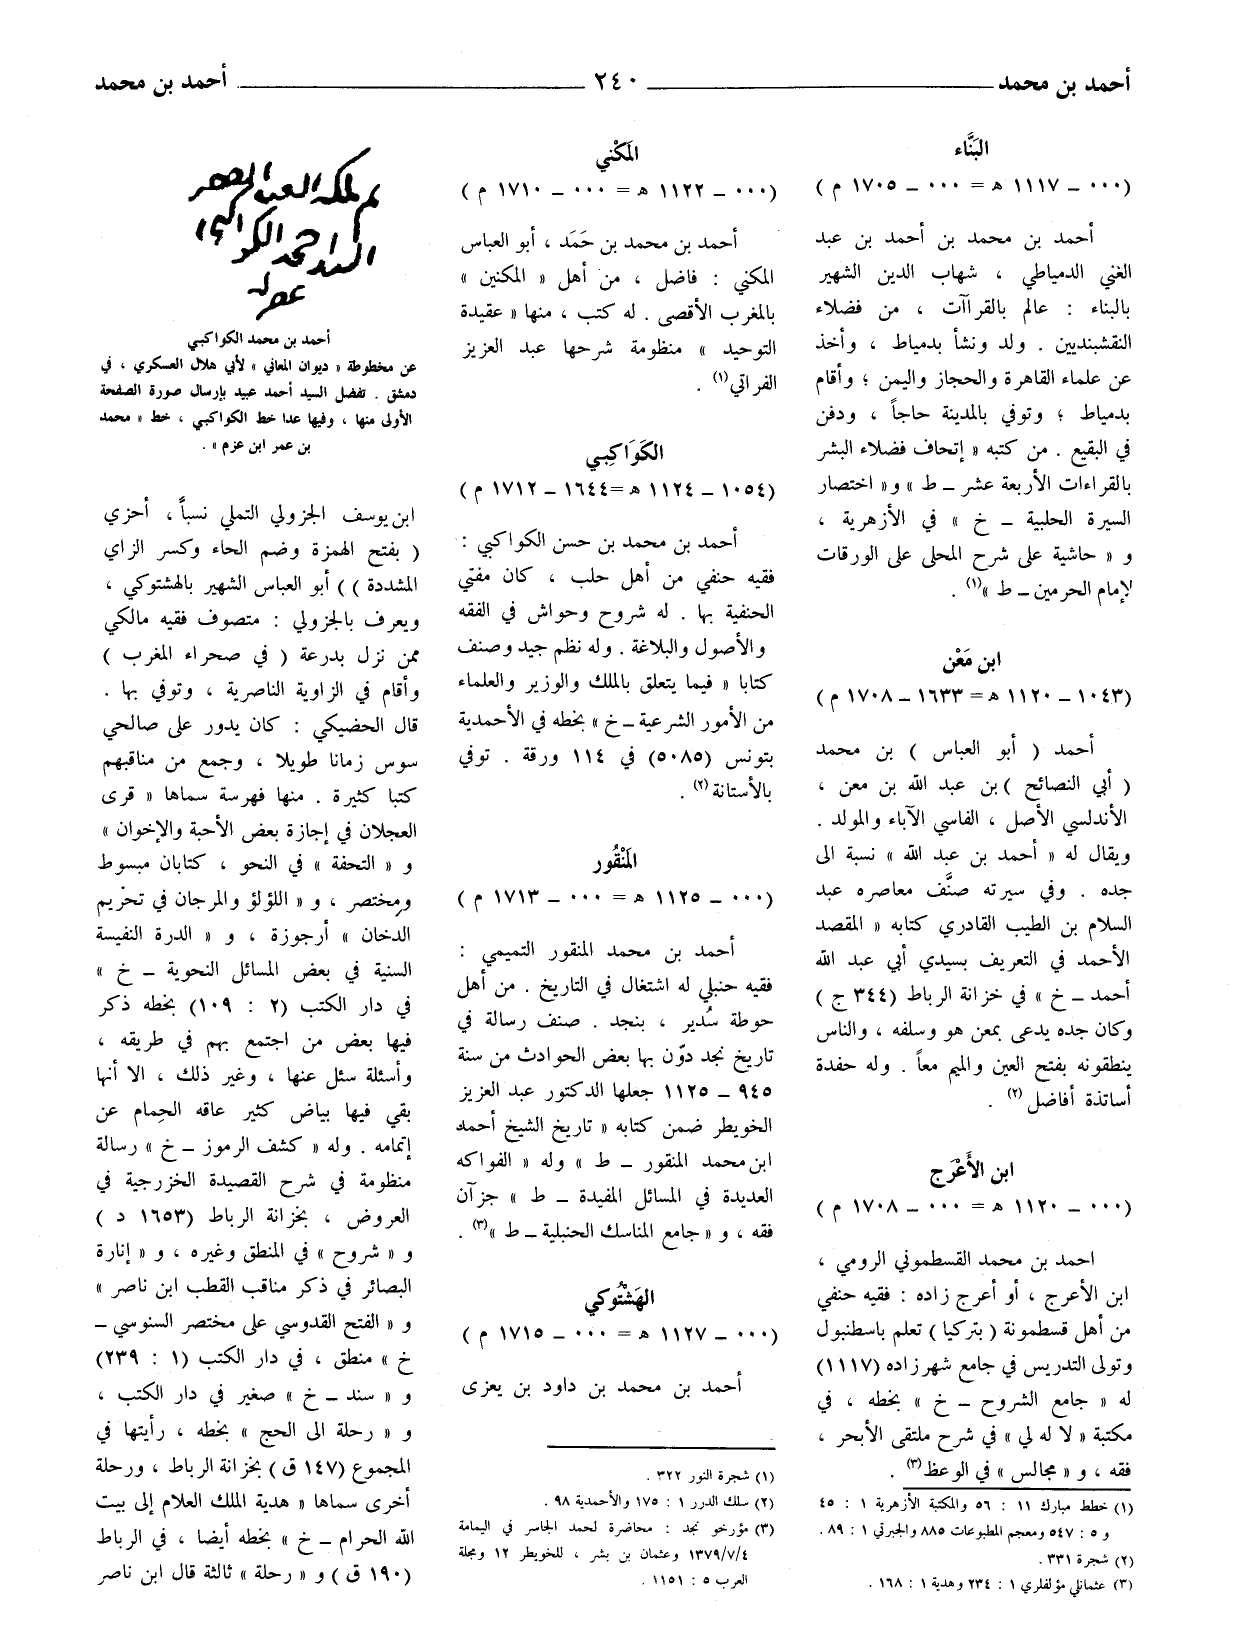 أحمد بن محمد ــــ ٢٤٠ ــــ أحمد بن محمد
البَنَّاء
(٠٠٠ ـ ١١١٧ ه = ٠٠٠ ـ ١٧٠٥ م)
أحمد بن محمد بن أحمد بن عبد
الغني الدمياطي ، شهاب الدين الشهير
بالبناء : عالم بالقراآت ، من فضلاء
النقشبنديين . ولد ونشأ بدمياط ، وأخذ
عن علماء القاهرة والحجاز واليمن ؛ وأقام
بدمياط ؛ وتوفي بالمدينة حاجاً ، ودفن
في البقيع . من كتبه « إتحاف فضلاء البشر
بالقراءات الأربعة عشر ـ ط » و« اختصار
السيرة الحلبية ـ خ » في الأزهرية ،
و « حاشية على شرح المحلى على الورقات
لإمام الحرمين ـ ط »(١) .
ابن مَعْن
(١٠٤٣ ـ ١١٢٠ ه = ١٦٣٣ ـ ١٧٠٨ م)
أحمد ( أبو العباس ) بن محمد
( أبي النصائح ) بن عبد الله بن معن ،
الأندلسي الأصل ، الفاسي الآباء والمولد .
ويقال له « أحمد بن عبد الله » نسبة الى
جده . وفي سيرته صنَّف معاصره عبد
السلام بن الطيب القادري كتابه « المقصد
الأحمد في التعريف بسيدي أبي عبد الله
أحمد ـ خ » في خزانة الرباط (٣٤٤ ج )
وكان جده يدعى بمعن هو وسلفه ، والناس
ينطقونه بفتح العين والميم معاً . وله حفدة
أساتذة أفاضل(٢) .
ابن الأَعْرَج
(٠٠٠ ـ ١١٢٠ ه = ٠٠٠ ـ ١٧٠٨ م)
احمد بن محمد القسطموني الرومي ،
ابن الأعرج ، أو أعرج زاده : فقيه حنفي
من أهل قسطمونة ( بتركيا ) تعلم باسطنبول
وتولى التدريس في جامع شهرزاده (١١١٧)
له « جامع الشروح ـ خ » بخطه ، في
مكتبة « لا له لي » في شرح ملتقى الأبحر ،
فقه ، و « مجالس » في الوعظ(٣) .
(١) خطط مبارك ١١ : ٥٦ والمكتبة الأزهرية ١ : ٤٥
و ٥ : ٥٤٧ ومعجم المطبوعات ٨٨٥ والجبرتي ١ : ٨٩ .
(٢) شجرة ٣٣١ .
(٣) عثمانلي مؤلفلري ١ : ٢٣٤ وهدية ١ : ١٦٨ .
المَكْني
(٠٠٠ ـ ١١٢٢ ه = ٠٠٠ ـ ١٧١٠ م )
أحمد بن محمد بن حَمَد ، أبو العباس
المكني : فاضل ، من أهل « المكنين »
بالمغرب الأقصى . له كتب ، منها « عقيدة
التوحيد » منظومة شرحها عبد العزيز
الفراتي(١) .
الكَوَاكِبي
(١٠٥٤ ـ ١١٢٤ ه =١٦٤٤ ـ ١٧١٢ م )
أحمد بن محمد بن حسن الكواكبي :
فقيه حنفي من أهل حلب ، كان مفتي
الحنفية بها . له شروح وحواش في الفقه
والأصول والبلاغة . وله نظم جيد وصنف
كتابا « فيما يتعلق بالملك والوزير والعلماء
من الأمور الشرعية ـ خ » بخطه في الأحمدية
بتونس (٥٠٨٥) في ١١٤ ورقة . توفي
بالأستانة(٢) .
المَنْقُور
(٠٠٠ ـ ١١٢٥ ه = ٠٠٠ ـ ١٧١٣ م )
أحمد بن محمد المنقور التميمي :
فقيه حنبلي له اشتغال في التاريخ . من أهل
حوطة سُدير ، بنجد . صنف رسالة في
تاريخ نجد دوّن بها بعض الحوادث من سنة
٩٤٥ ـ ١١٢٥ جعلها الدكتور عبد العزيز
الخويطر ضمن كتابه « تاريخ الشيخ أحمد
ابن محمد المنقور ـ ط » وله « الفواكه
العديدة في المسائل المفيدة ـ ط » جزآن
فقه ، و « جامع المناسك الحنبلية ـ ط »(٣) .
الهَشْتُوكي
(٠٠٠ ـ ١١٢٧ ه = ٠٠٠ ـ ١٧١٥ م )
أحمد بن محمد بن داود بن يعزى
(١) شجرة النور ٣٢٢ .
(٢) سلك الدرر ١ : ١٧٥ والأحمدية ٩٨ .
(٣) مؤرخو نجد : محاضرة لحمد الجاسر في اليمامة
١٣٧٩/٧/٤ وعثمان بن بشر ، للخويطر ١٢ ومجلة
العرب ٥ : ١١٥١ .
السيد احمد الكواكبي
أحمد بن محمد الكواكبي
عن مخطوطة « ديوان المعاني » لأبي هلال العسكري ، في
دمشق . تفضل السيد أحمد عبيد بإرسال صورة الصفحة
الأولى منها ، وفيها عدا خط الكواكبي ، خط « محمد
بن عمر ابن عزم » .
ابن يوسف الجزولي التملي نسباً ، أحزي
( بفتح الهمزة وضم الحاء وكسر الزاي
المشددة ) ) أبو العباس الشهير بالهشتوكي ،
ويعرف بالجزولي : متصوف فقيه مالكي
ممن نزل بدرعة ( في صحراء المغرب )
وأقام في الزاوية الناصرية ، وتوفي بها .
قال الحضيكي : كان يدور على صالحي
سوس زمانا طويلا ، وجمع من مناقبهم
كتبا كثيرة . منها فهرسة سماها « قرى
العجلان في إجازة بعض الأحبة والإخوان »
و « التحفة » في النحو ، كتابان مبسوط
ومختصر ، و « اللؤلؤ والمرجان في تحريم
الدخان » أرجوزة ، و « الدرة النفيسة
السنية في بعض المسائل النحوية ـ خ »
في دار الكتب (٢ : ١٠٩) بخطه ذكر
فيها بعض من اجتمع بهم في طريقه ،
وأسئلة سئل عنها ، وغير ذلك ، الا أنها
بقي فيها بياض كثير عاقه الحِمام عن
إتمامه . وله « كشف الرموز ـ خ » رسالة
منظومة في شرح القصيدة الخزرجية في
العروض ، بخزانة الرباط (١٦٥٣ د )
و « شروح » في المنطق وغيره ، و « إنارة
البصائر في ذكر مناقب القطب ابن ناصر »
و « الفتح القدوسي على مختصر السنوسي ـ
خ » منطق ، في دار الكتب (١ : ٢٣٩)
و « سند ـ خ » صغير في دار الكتب ،
و « رحلة الى الحج » بخطه ، رأيتها في
المجموع (١٤٧ ق ) بخزانة الرباط ، ورحلة
أخرى سماها « هدية الملك العلام إلى بيت
الله الحرام ـ خ » بخطه أيضا ، في الرباط
(١٩٠ ق ) و « رحلة » ثالثة قال ابن ناصر